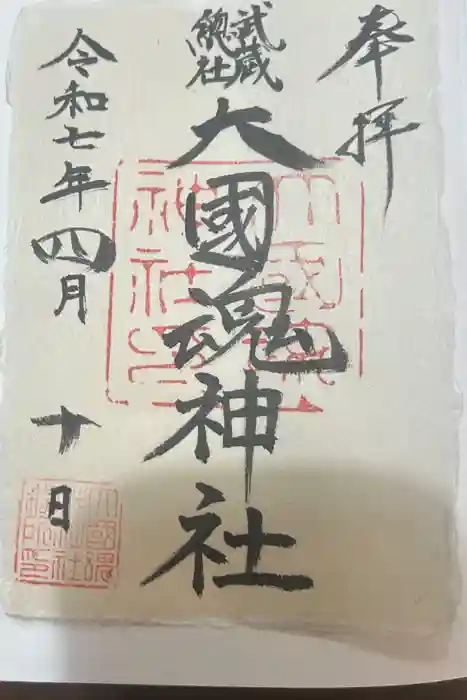 奉拝
武蔵
総社
大國魂神社
令和七年四月十日